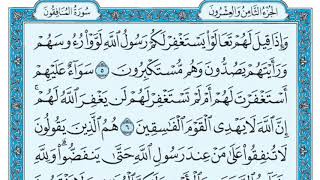 سُورَةُ المُنَافِقُونَ الجُزْءُ الثَّامِنُ وَالعِشْرُونَ
وَإِذَا قِيلَ لَهُمْ تَعَالَوْا۟ يَسْتَغْفِرْ لَكُمْ رَسُولُ ٱللَّهِ لَوَّوْا۟ رُءُوسَهُمْ
وَرَأَيْتَهُمْ يَصُدُّونَ وَهُم مُّسْتَكْبِرُونَ ٥ سَوَآءٌ عَلَيْهِمْ
أَسْتَغْفَرْتَ لَهُمْ أَمْ لَمْ تَسْتَغْفِرْ لَهُمْ لَن يَغْفِرَ ٱللَّهُ لَهُمْ ۚ
إِنَّ ٱللَّهَ لَا يَهْدِى ٱلْقَوْمَ ٱلْفَٰسِقِينَ ٦ هُمُ ٱلَّذِينَ يَقُولُونَ
لَا تُنفِقُوا۟ عَلَىٰ مَنْ عِندَ رَسُولِ ٱللَّهِ حَتَّىٰ يَنفَضُّوا۟ ۗ وَلِلَّهِ